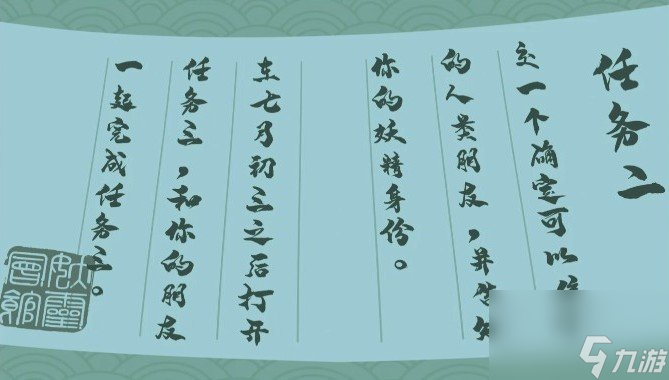 任务二
交一个确定可以信
的人类朋友，并告知
你的妖精身份。
在七月初三之后打开
任务三，和你的朋友
一起完成任务三。
妖靈會館
九游